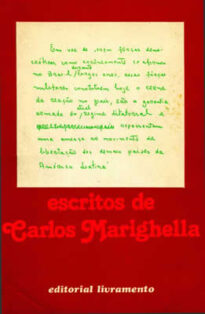 Em vez de serem forças demo-
cráticas como orgulhosamente se afirmou
durante
no Brasil largos anos, essas forças
militares constituem hoje o cerne
da reação no país, são a garantia
atual
armada do regime ditatorial e
representam
uma ameaça ao movimento de
libertação dos demais países da
América Latina
escritos de
Carlos Marighella
editorial livramento